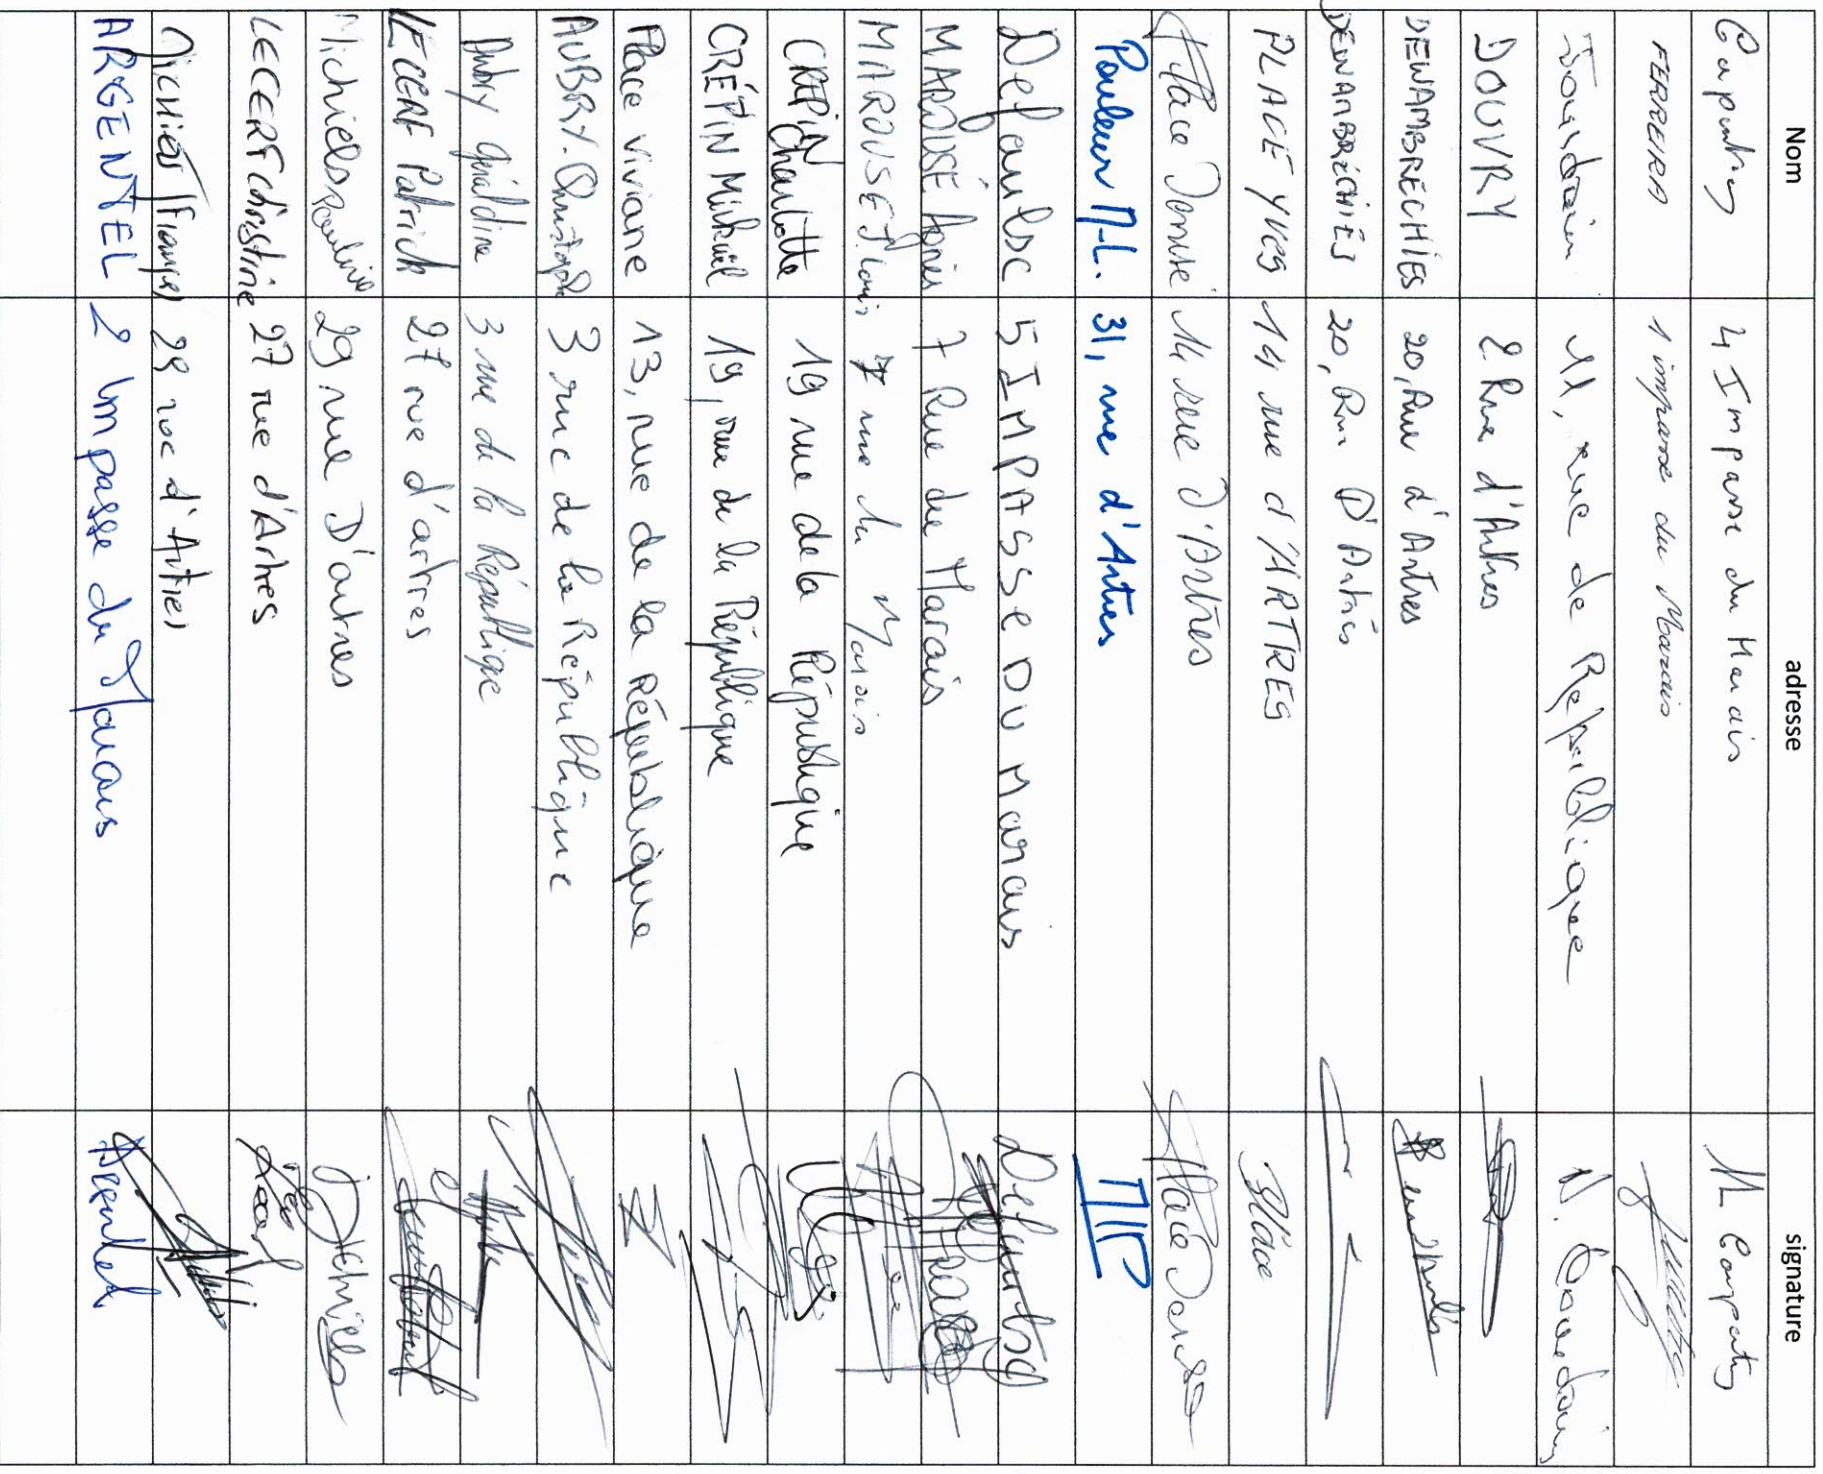 Nom adresse signature
4 Impasse du Marais
FERREIRA 1 impasse du Marais
11, rue de République
DOUVRY 2 Rue d'Artres
DEWAMBRECHIES 20, Rue d'Artres
DEWAMBRECHIES 20, Rue D'Artres
PLACE YVES 14 rue d'ARTRES Place
Place Denise 14 rue D'Artres Place Denise
Pouleur M-L. 31, rue d'Artres
Defaulsc 5 IMPASSE DU Marais
MAROUSÉ Agnès 7 Rue du Marais
MAROUSE J. Louis 7 rue du Marais
CRÉPIN Charlotte 19 rue de la République
CRÉPIN Mickaël 19, rue de la République
Place Viviane 13, rue de la République
AUBRY Christophe 3 rue de la République
Aubry Géraldine 3 rue de la République
LECERF Patrick 27 rue d'artres
Michiels Pauline 29 rue D'artres Michiels
LECERF Christine 27 rue d'Artres
29 rue d'Artres
ARGENTEL 2 Impasse du Marais Argentel